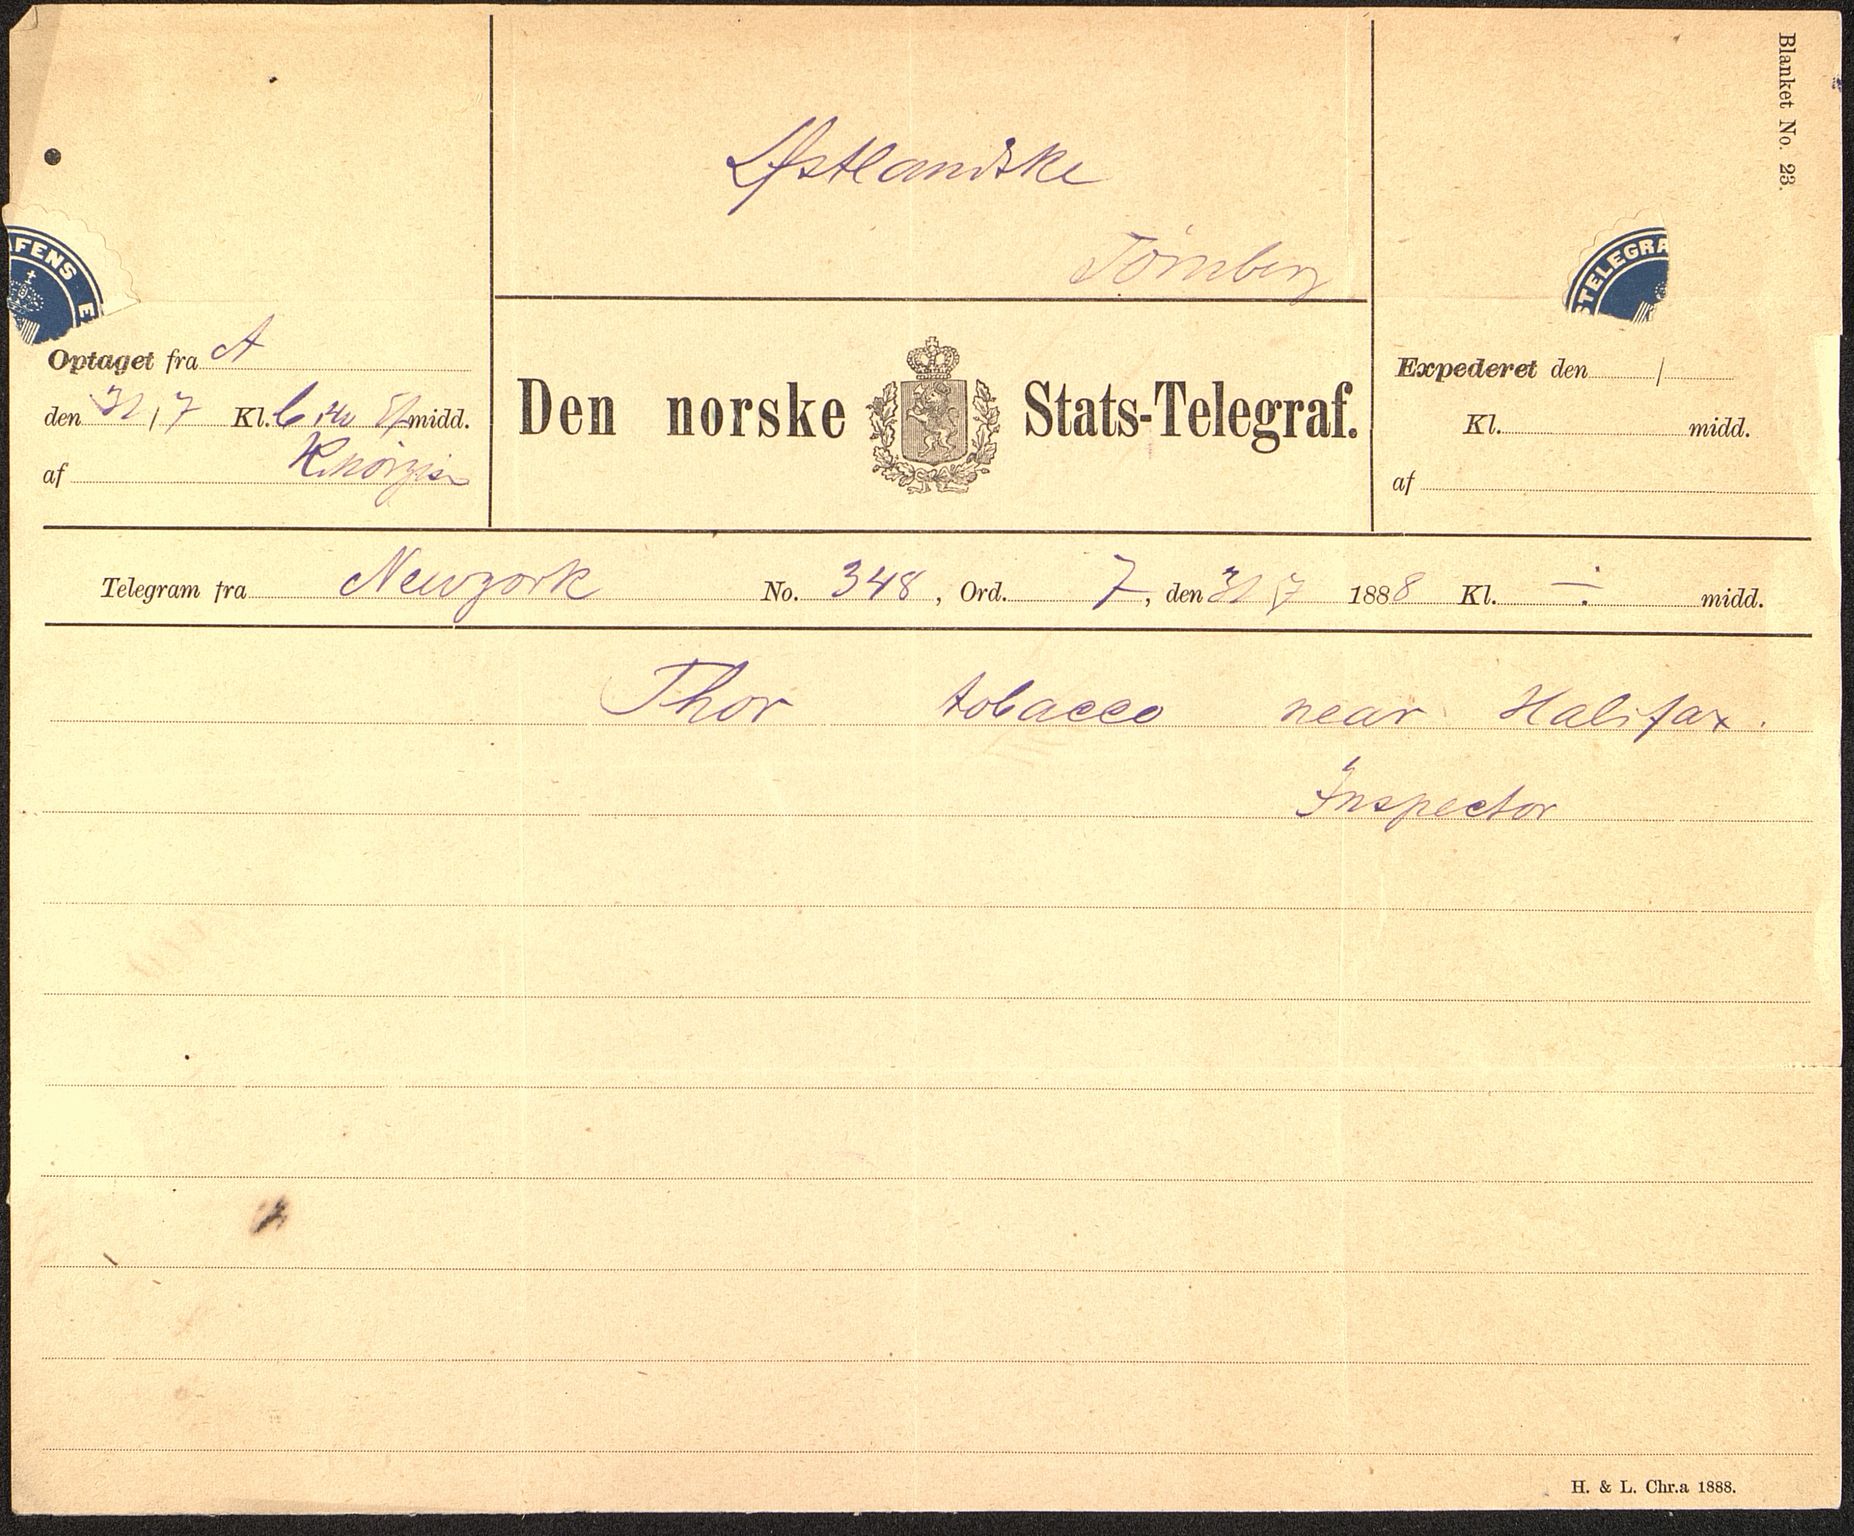 Blanket No. 23.
Østlandske
Tönsberg
AFENS E
STELEGRA
Optaget fra A
den 31/7 Kl. 6 40 Ef midd.
af
Den norske Stats-Telegraf.
Expederet den / 
Kl. midd.
af
Telegram fra Newyork No. 348, Ord. 7, den 31/7 1888 Kl. ÷ midd.
Thor tobacco near Halifax.
Inspector
H. & L. Chr.a 1888.